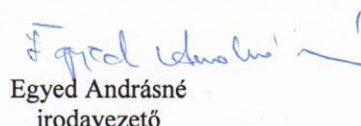 Egyed Andrásné
Egyed Andrásné
irodavezető